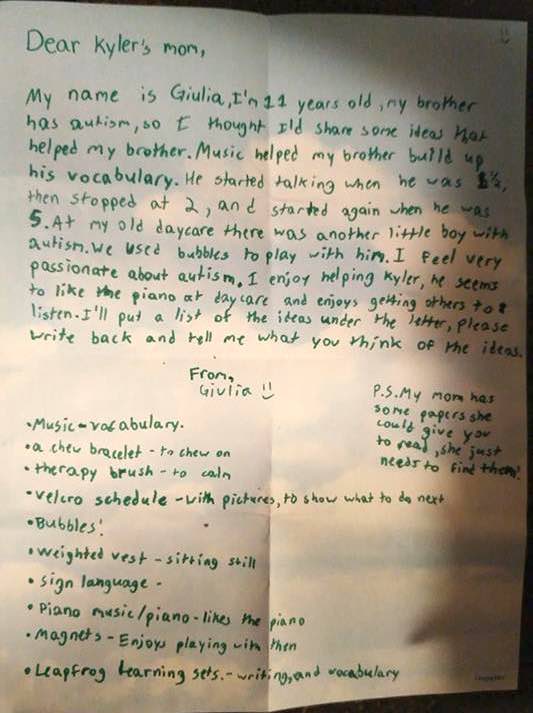 Dear Kyler's mom,
My name is Giulia, I'm 11 years old, my brother
has autism, so I thought I'd share some ideas that
helped my brother. Music helped my brother build up
his vocabulary. He started talking when he was 1½,
then stopped at 2, and started again when he was
5. At my old daycare there was another little boy with
autism. We used bubbles to play with him. I feel very
passionate about autism. I enjoy helping Kyler, he seems
to like the piano at daycare and enjoys getting others to
listen. I'll put a list of the ideas under the letter, please
write back and tell me what you think of the ideas.
From,
Giulia
P.S. My mom has
some papers she
could give you
to read, she just
needs to find them!
•Music - vocabulary.
•a chew bracelet - to chew on
•therapy brush - to calm
•velcro schedule - with pictures, to show what to do next
•Bubbles!
•weighted vest - sitting still
•sign language -
•Piano music/piano - likes the piano
•Magnets - Enjoys playing with then
•Leapfrog learning sets. - writing, and vocabulary